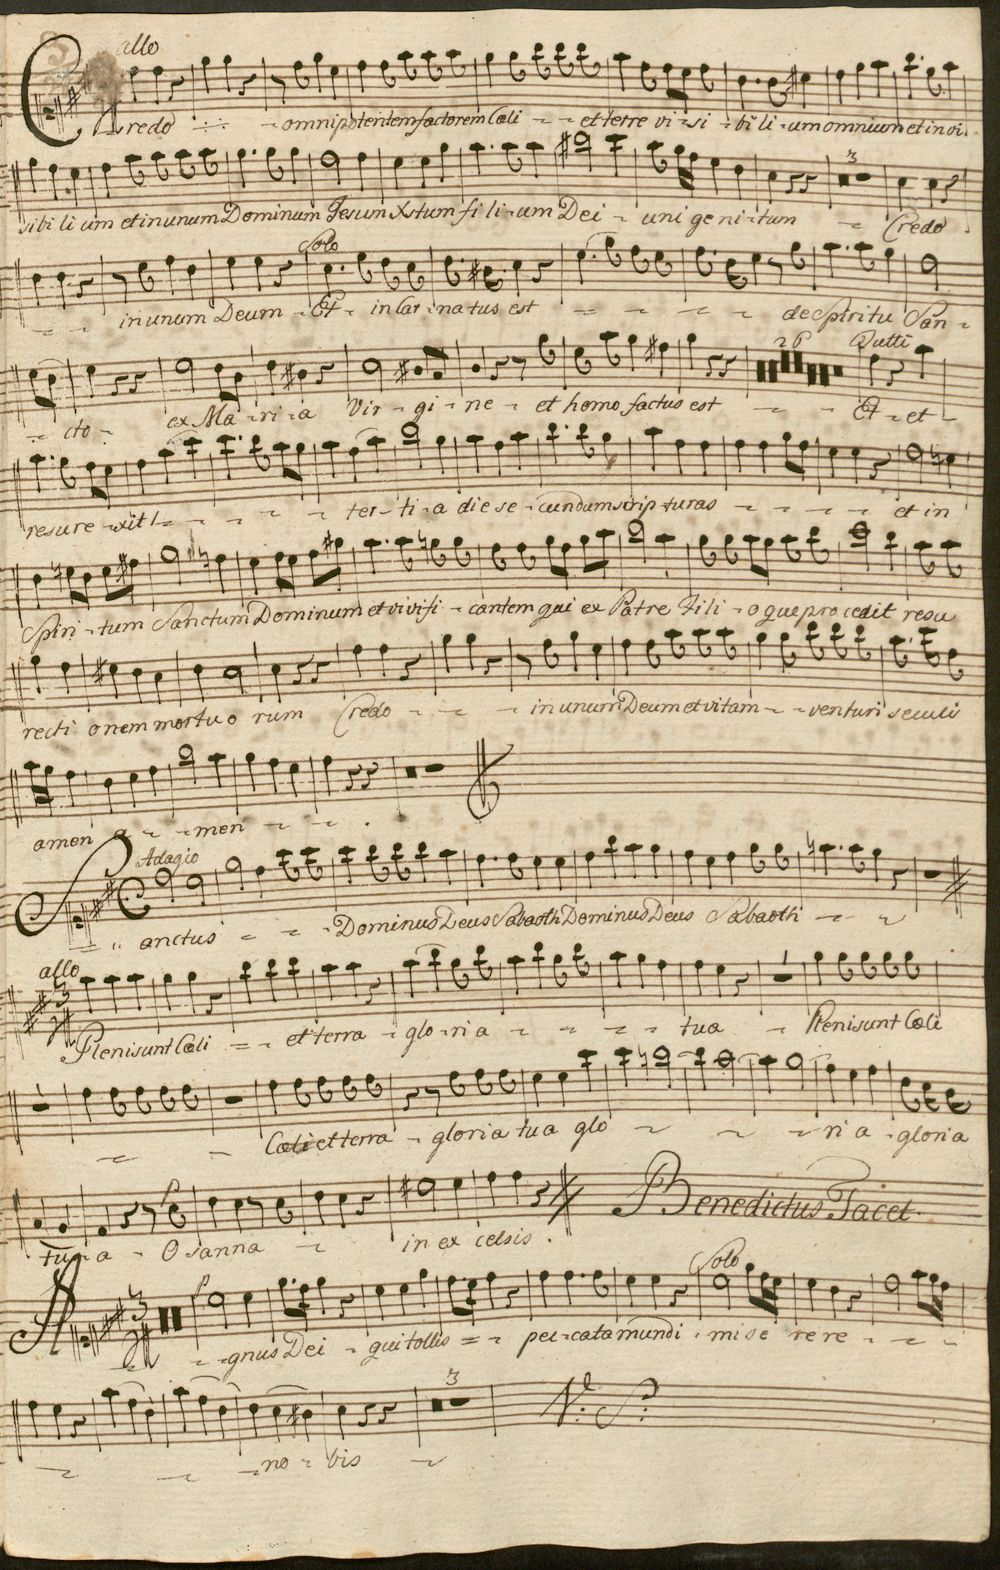 allo
Credo - omnipotentem factorem Cæli - - et terre vi - si - bi li - um omnium et in vi.
sibi li um et in unum Dominum Jesum Xstum fi li - um Dei - uni ge ni - tum - Credo
3
Solo
- - in unum Deum - Et - in Car - na tus est - - - - de Spiritu San -
26 Tutti
- cto - ex Ma - ri - a Vir - gi - ne - et homo factus est - - - Et - et -
resure - xit - - - - - ter - ti - a die se - cundum scrip - turas - - - - et in
Spiri - tum Sanctum Dominum et vivifi - cantem qui ex Patre Fili - o que pro cedit resu
recti onem mortu o rum Credo - - - in unum Deum et vitam - - venturi seculi
amen a - - men - - - .
Adagio
Sanctus - - - Dominus Deus Sabaoth Dominus Deus Sabaoth - -
allo
3
Pleni sunt Cæli - - et terra - glo - ri a - - - - tua - Pleni sunt Cæli
- - Cæli et terra - gloria tua glo - - - ri a - gloria
p
tu - a - O sanna - in ex celsis .
Benedictus Tacet.
3 p Solo
A - - gnus Dei - qui tollis - - pec - cata mundi - mise re re - - -
3
- - - no - bis -
V.S.